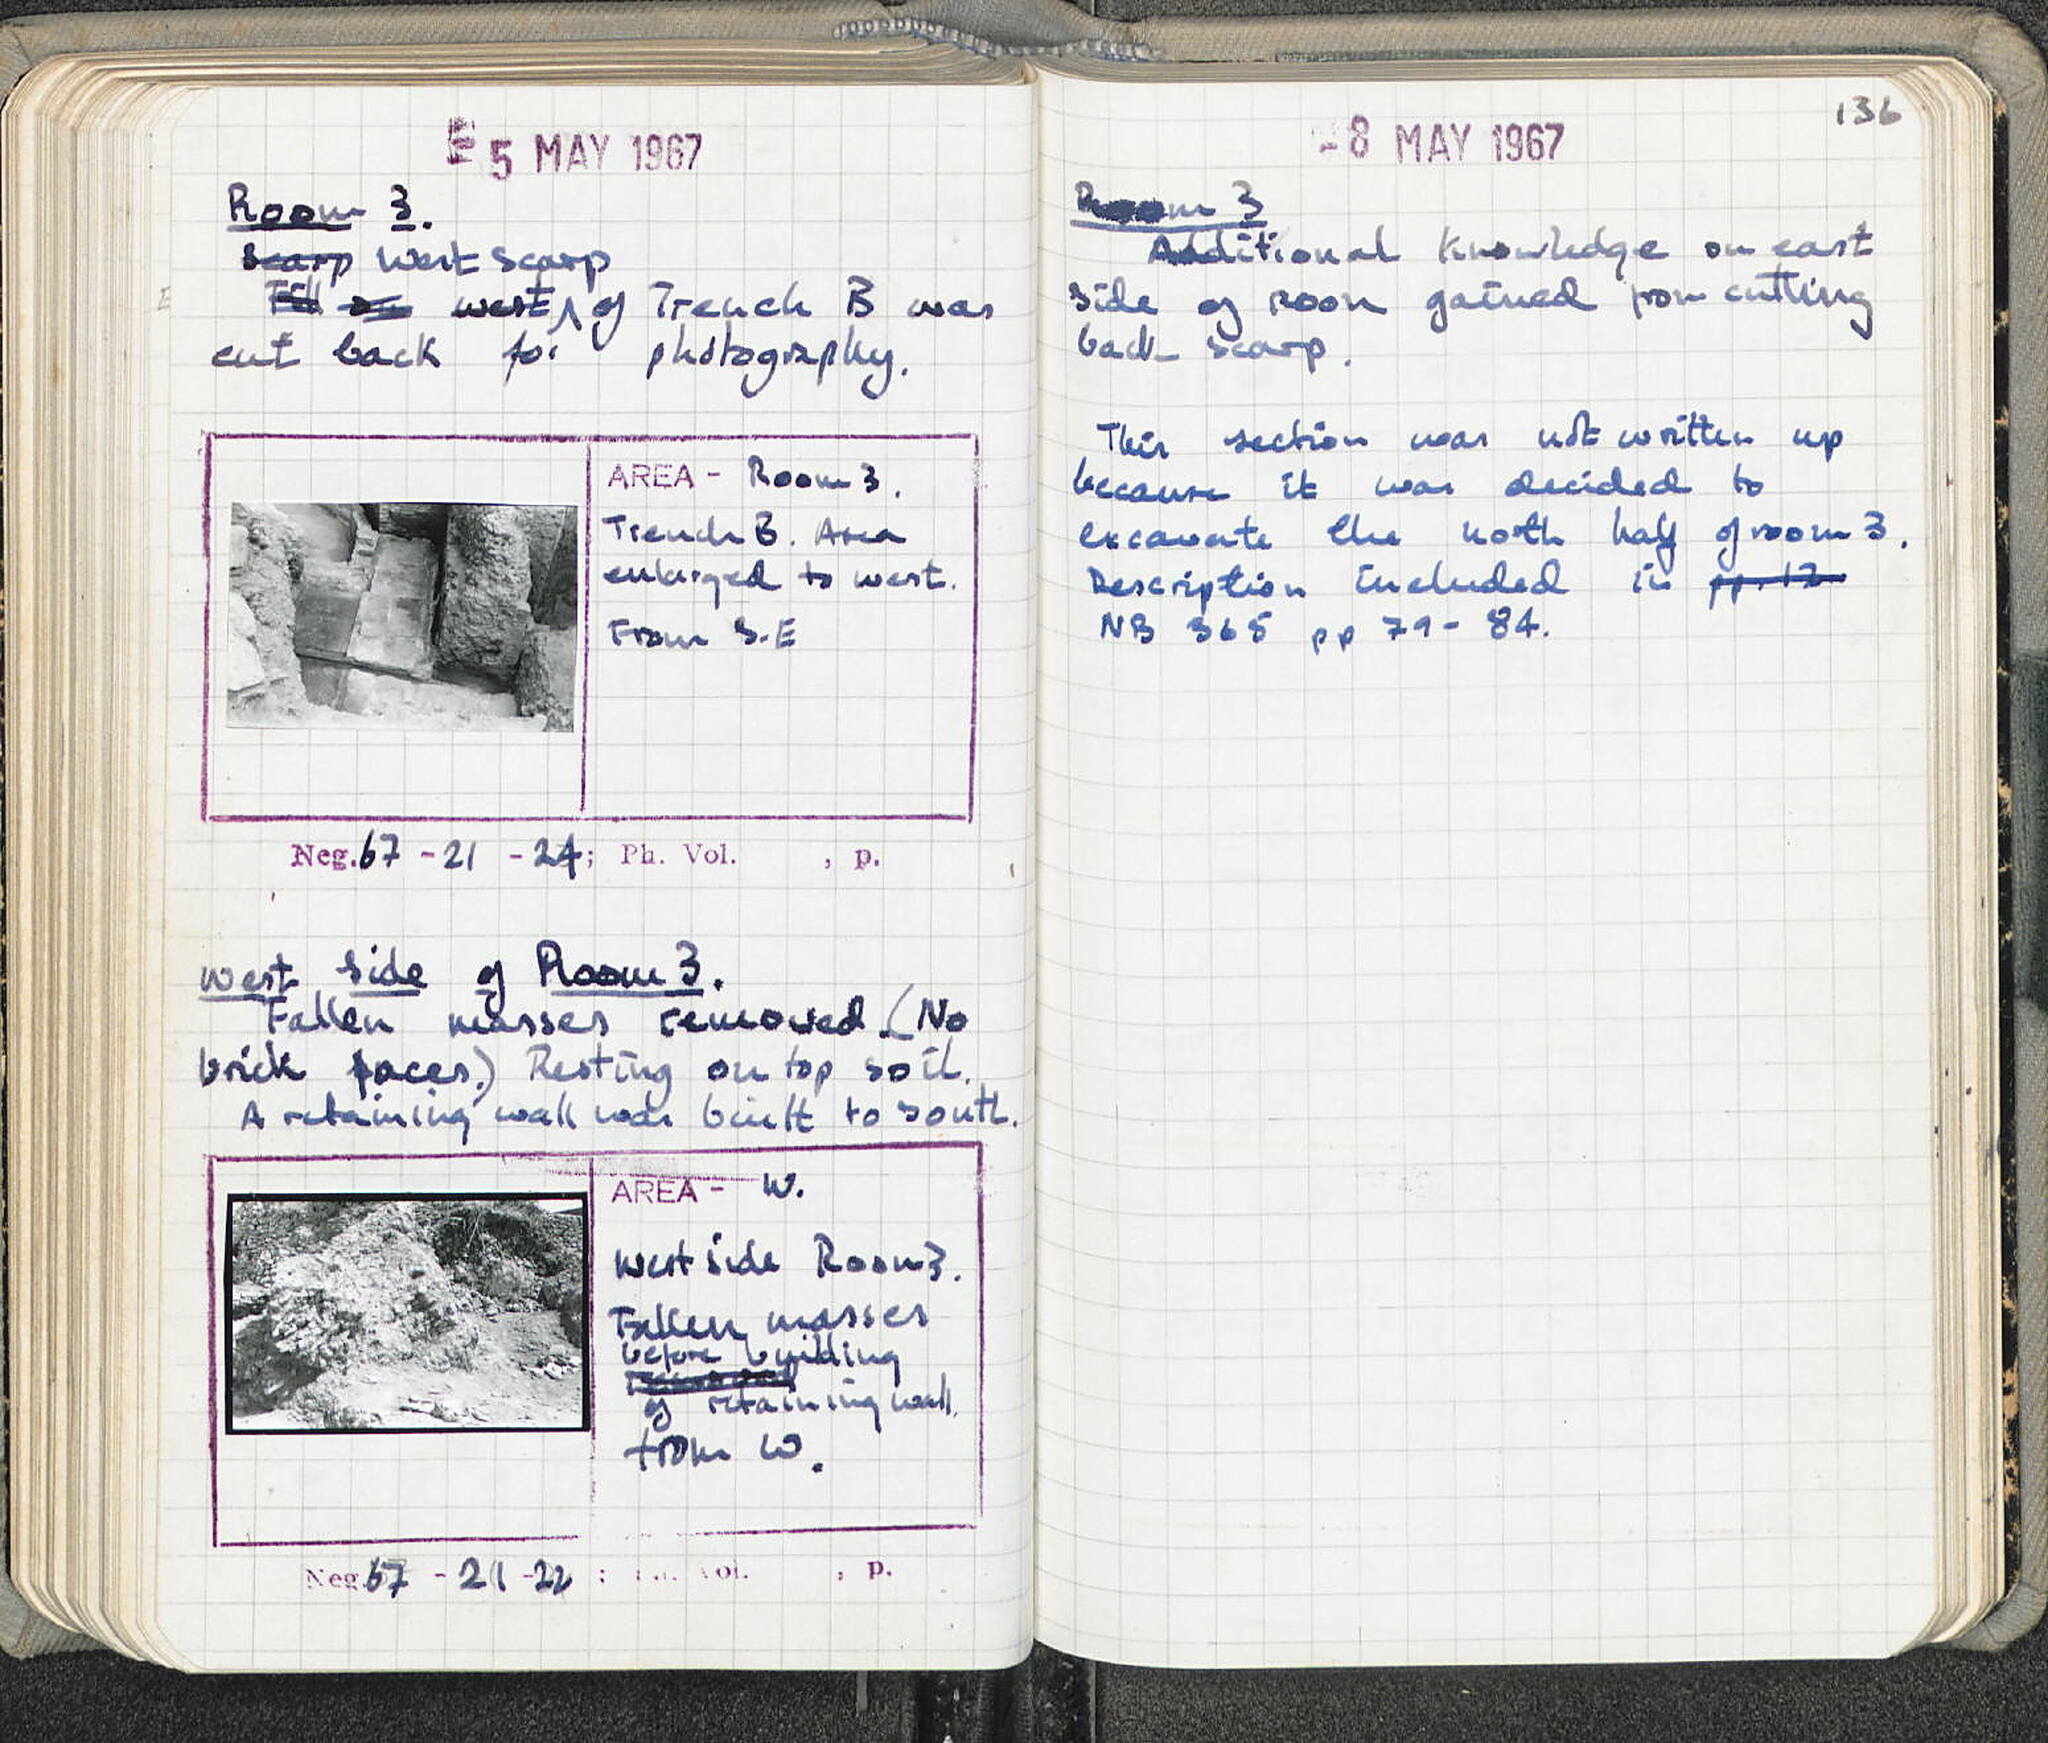 5 MAY 1967
Room 3.
Scarp West Scarp
Fill on west of Trench B was
cut back for photography.
AREA - Room 3.
Trench B. Area
enlarged to west.
From S.E
Neg. 67 - 21 - 24; Ph. Vol. , p.
West Side of Room 3.
Fallen masses removed. (No
brick faces.) Resting on top soil.
A retaining wall was built to south.
AREA - W.
West side Room 3.
Fallen masses
before building
of retaining wall.
From W.
Neg. 67 - 21 - 22 ; Ph. Vol. , p.
136
- 8 MAY 1967
Room 3
Additional knowledge on east
side of room gained from cutting
back scarp.
This section was not written up
because it was decided to
excavate the north half of room 3.
Description included in pp. 12
NB 365 pp 79 - 84.